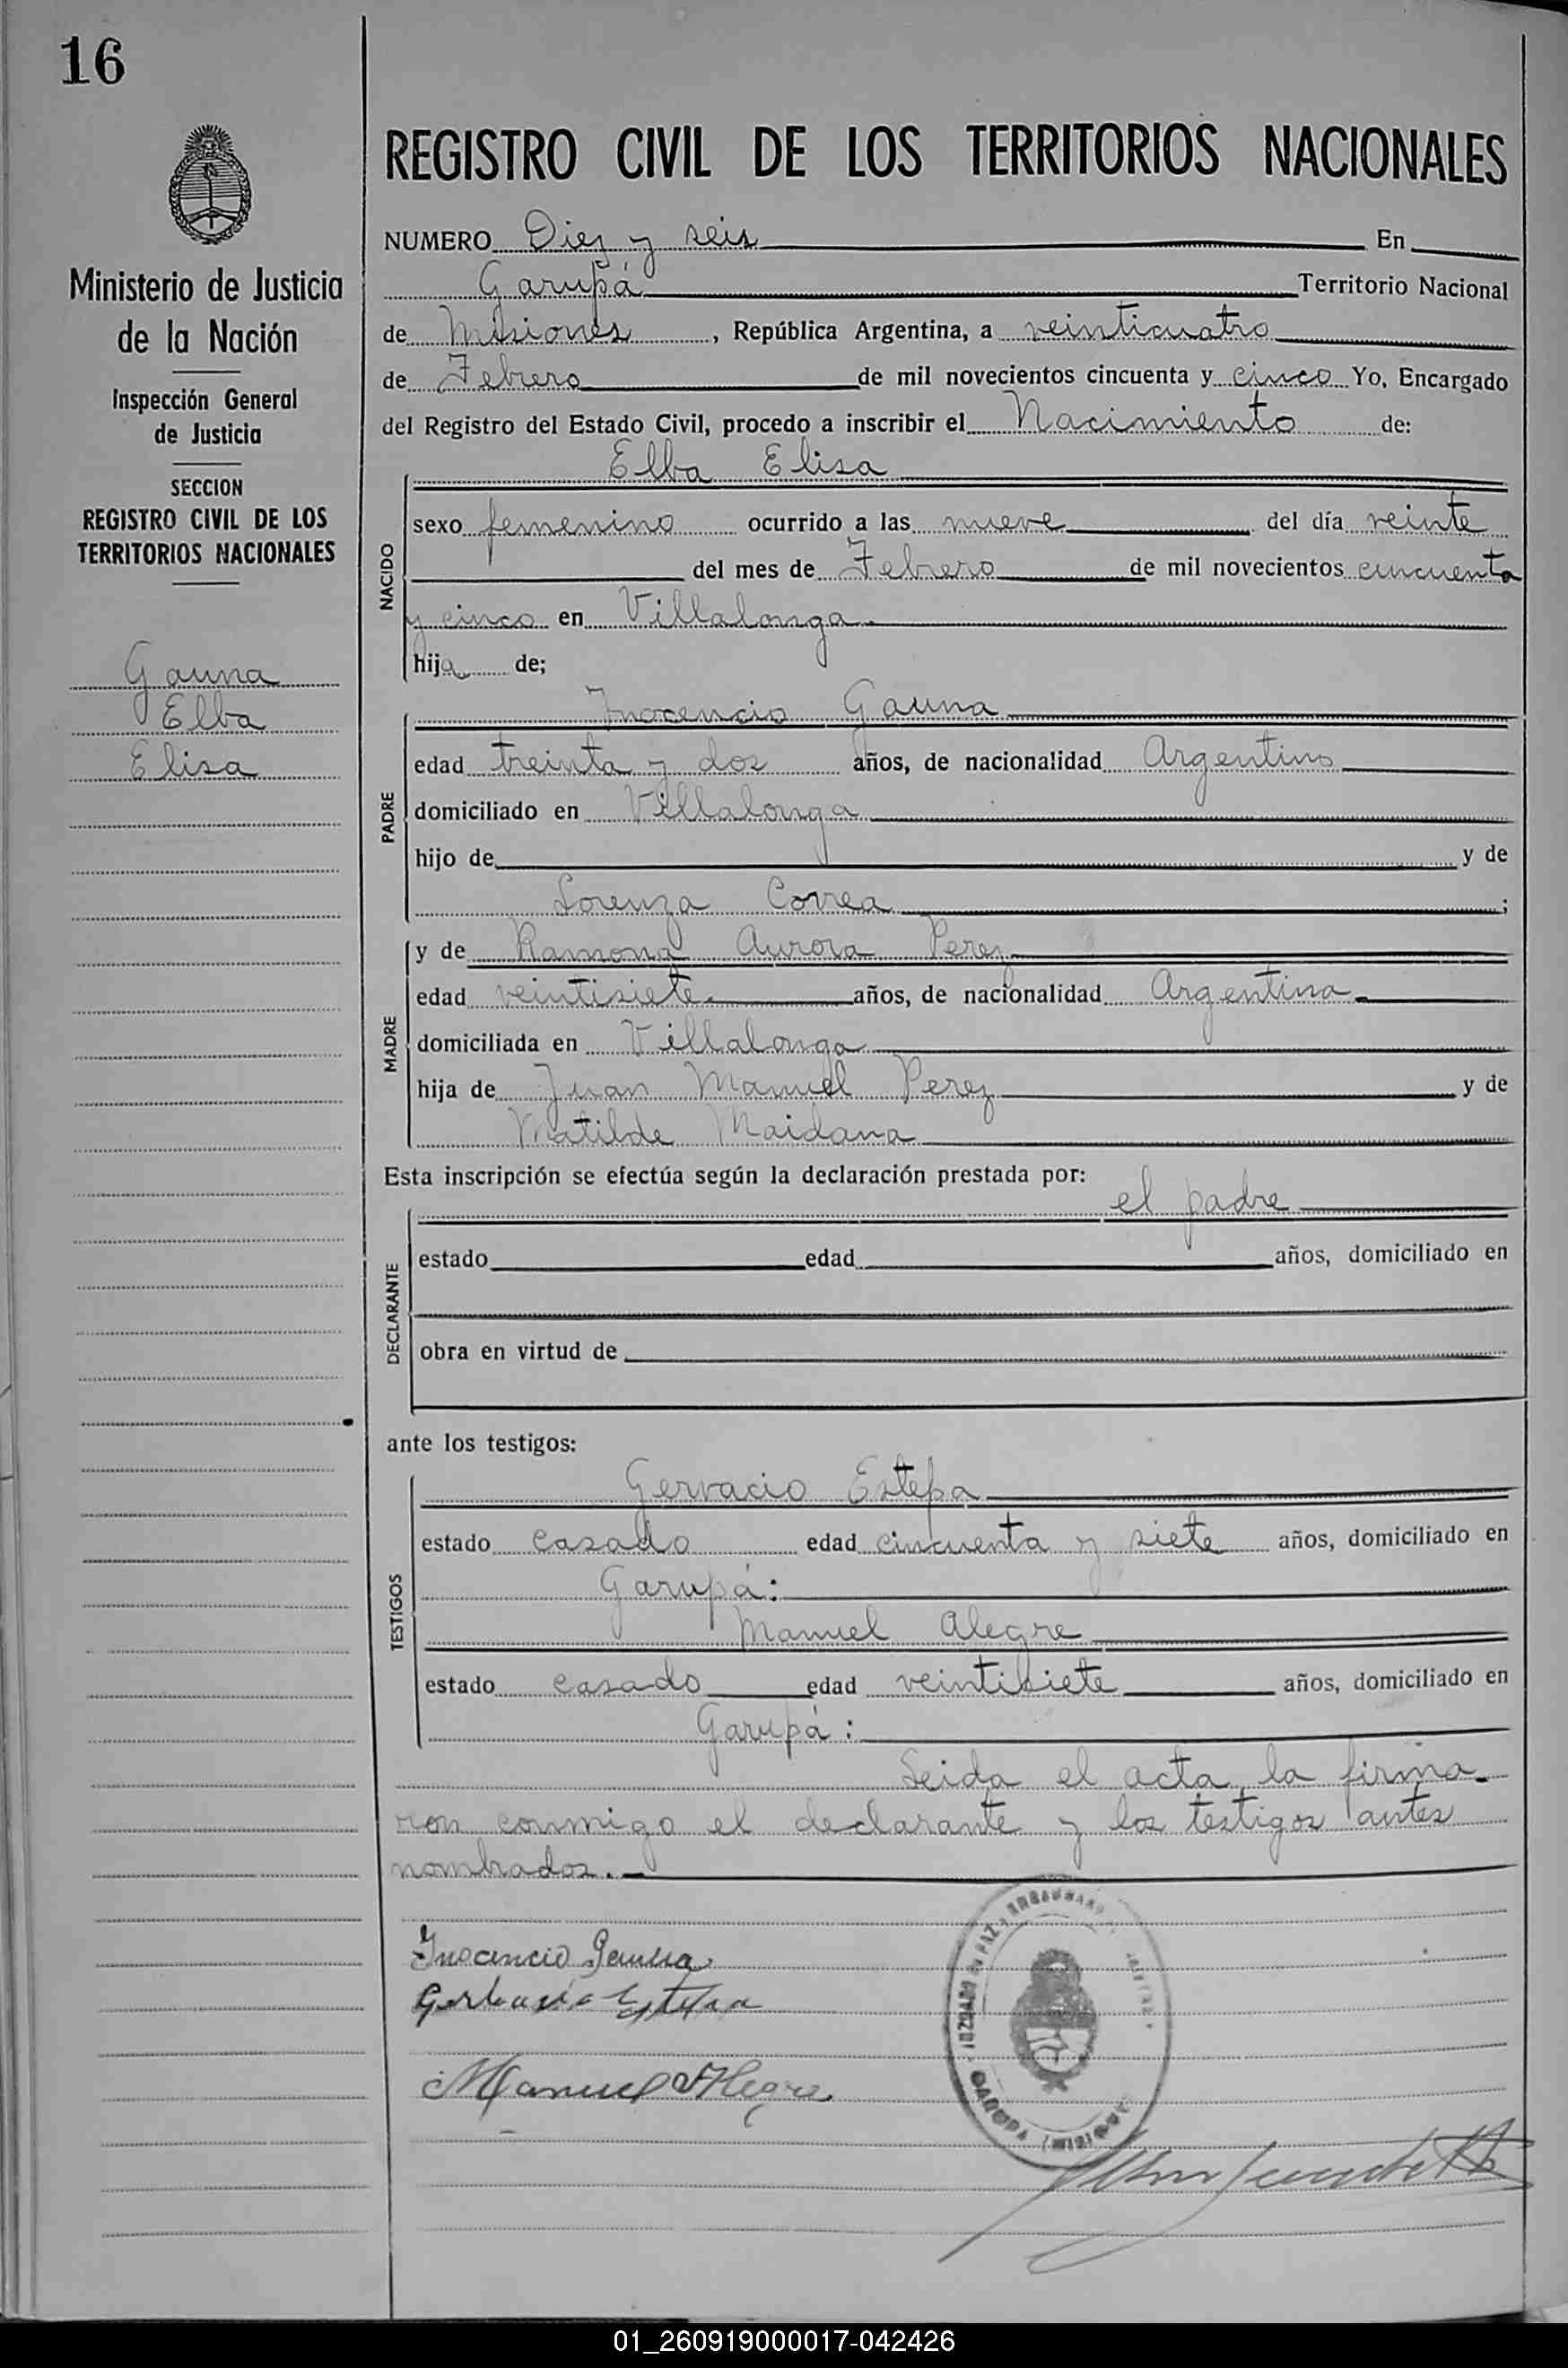 16
Ministerio de Justicia
de la Nación
Inspección General
de Justicia
SECCION
REGISTRO CIVIL DE LOS
TERRITORIOS NACIONALES
Gauna
Elba
Elisa
REGISTRO CIVIL DE LOS TERRITORIOS NACIONALES
NUMERO Diez y seis En
Garupá Territorio Nacional
de Misiones, República Argentina, a veinticuatro
de Febrero de mil novecientos cincuenta y cinco Yo, Encargado
del Registro del Estado Civil, procedo a inscribir el Nacimiento de:
NACIDO
Elba Elisa
sexo femenino ocurrido a las nueve del día veinte
del mes de Febrero de mil novecientos cincuenta
y cinco en Villalonga
hija de;
PADRE
Inocencio Gauna
edad treinta y dos años, de nacionalidad Argentino
domiciliado en Villalonga
hijo de y de
Lorenza Correa ;
MADRE
y de Ramona Aurora Perez
edad veintisiete años, de nacionalidad Argentina
domiciliada en Villalonga
hija de Juan Manuel Perez y de
Matilde Maidana
Esta inscripción se efectúa según la declaración prestada por:
DECLARANTE
el padre
estado edad años, domiciliado en
obra en virtud de
ante los testigos:
TESTIGOS
Gervacio Estepa
estado casado edad cincuenta y siete años, domiciliado en
Garupá:
Manuel Alegre
estado casado edad veintisiete años, domiciliado en
Garupá:
Leida el acta, la firma-
ron conmigo el declarante y los testigos antes
nombrados.
Inocencio Gauna
Gerbacio Estepa
Manuel Alegre
JUZGADO DE PAZ
GARUPA (MISIONES)
01_260919000017-042426